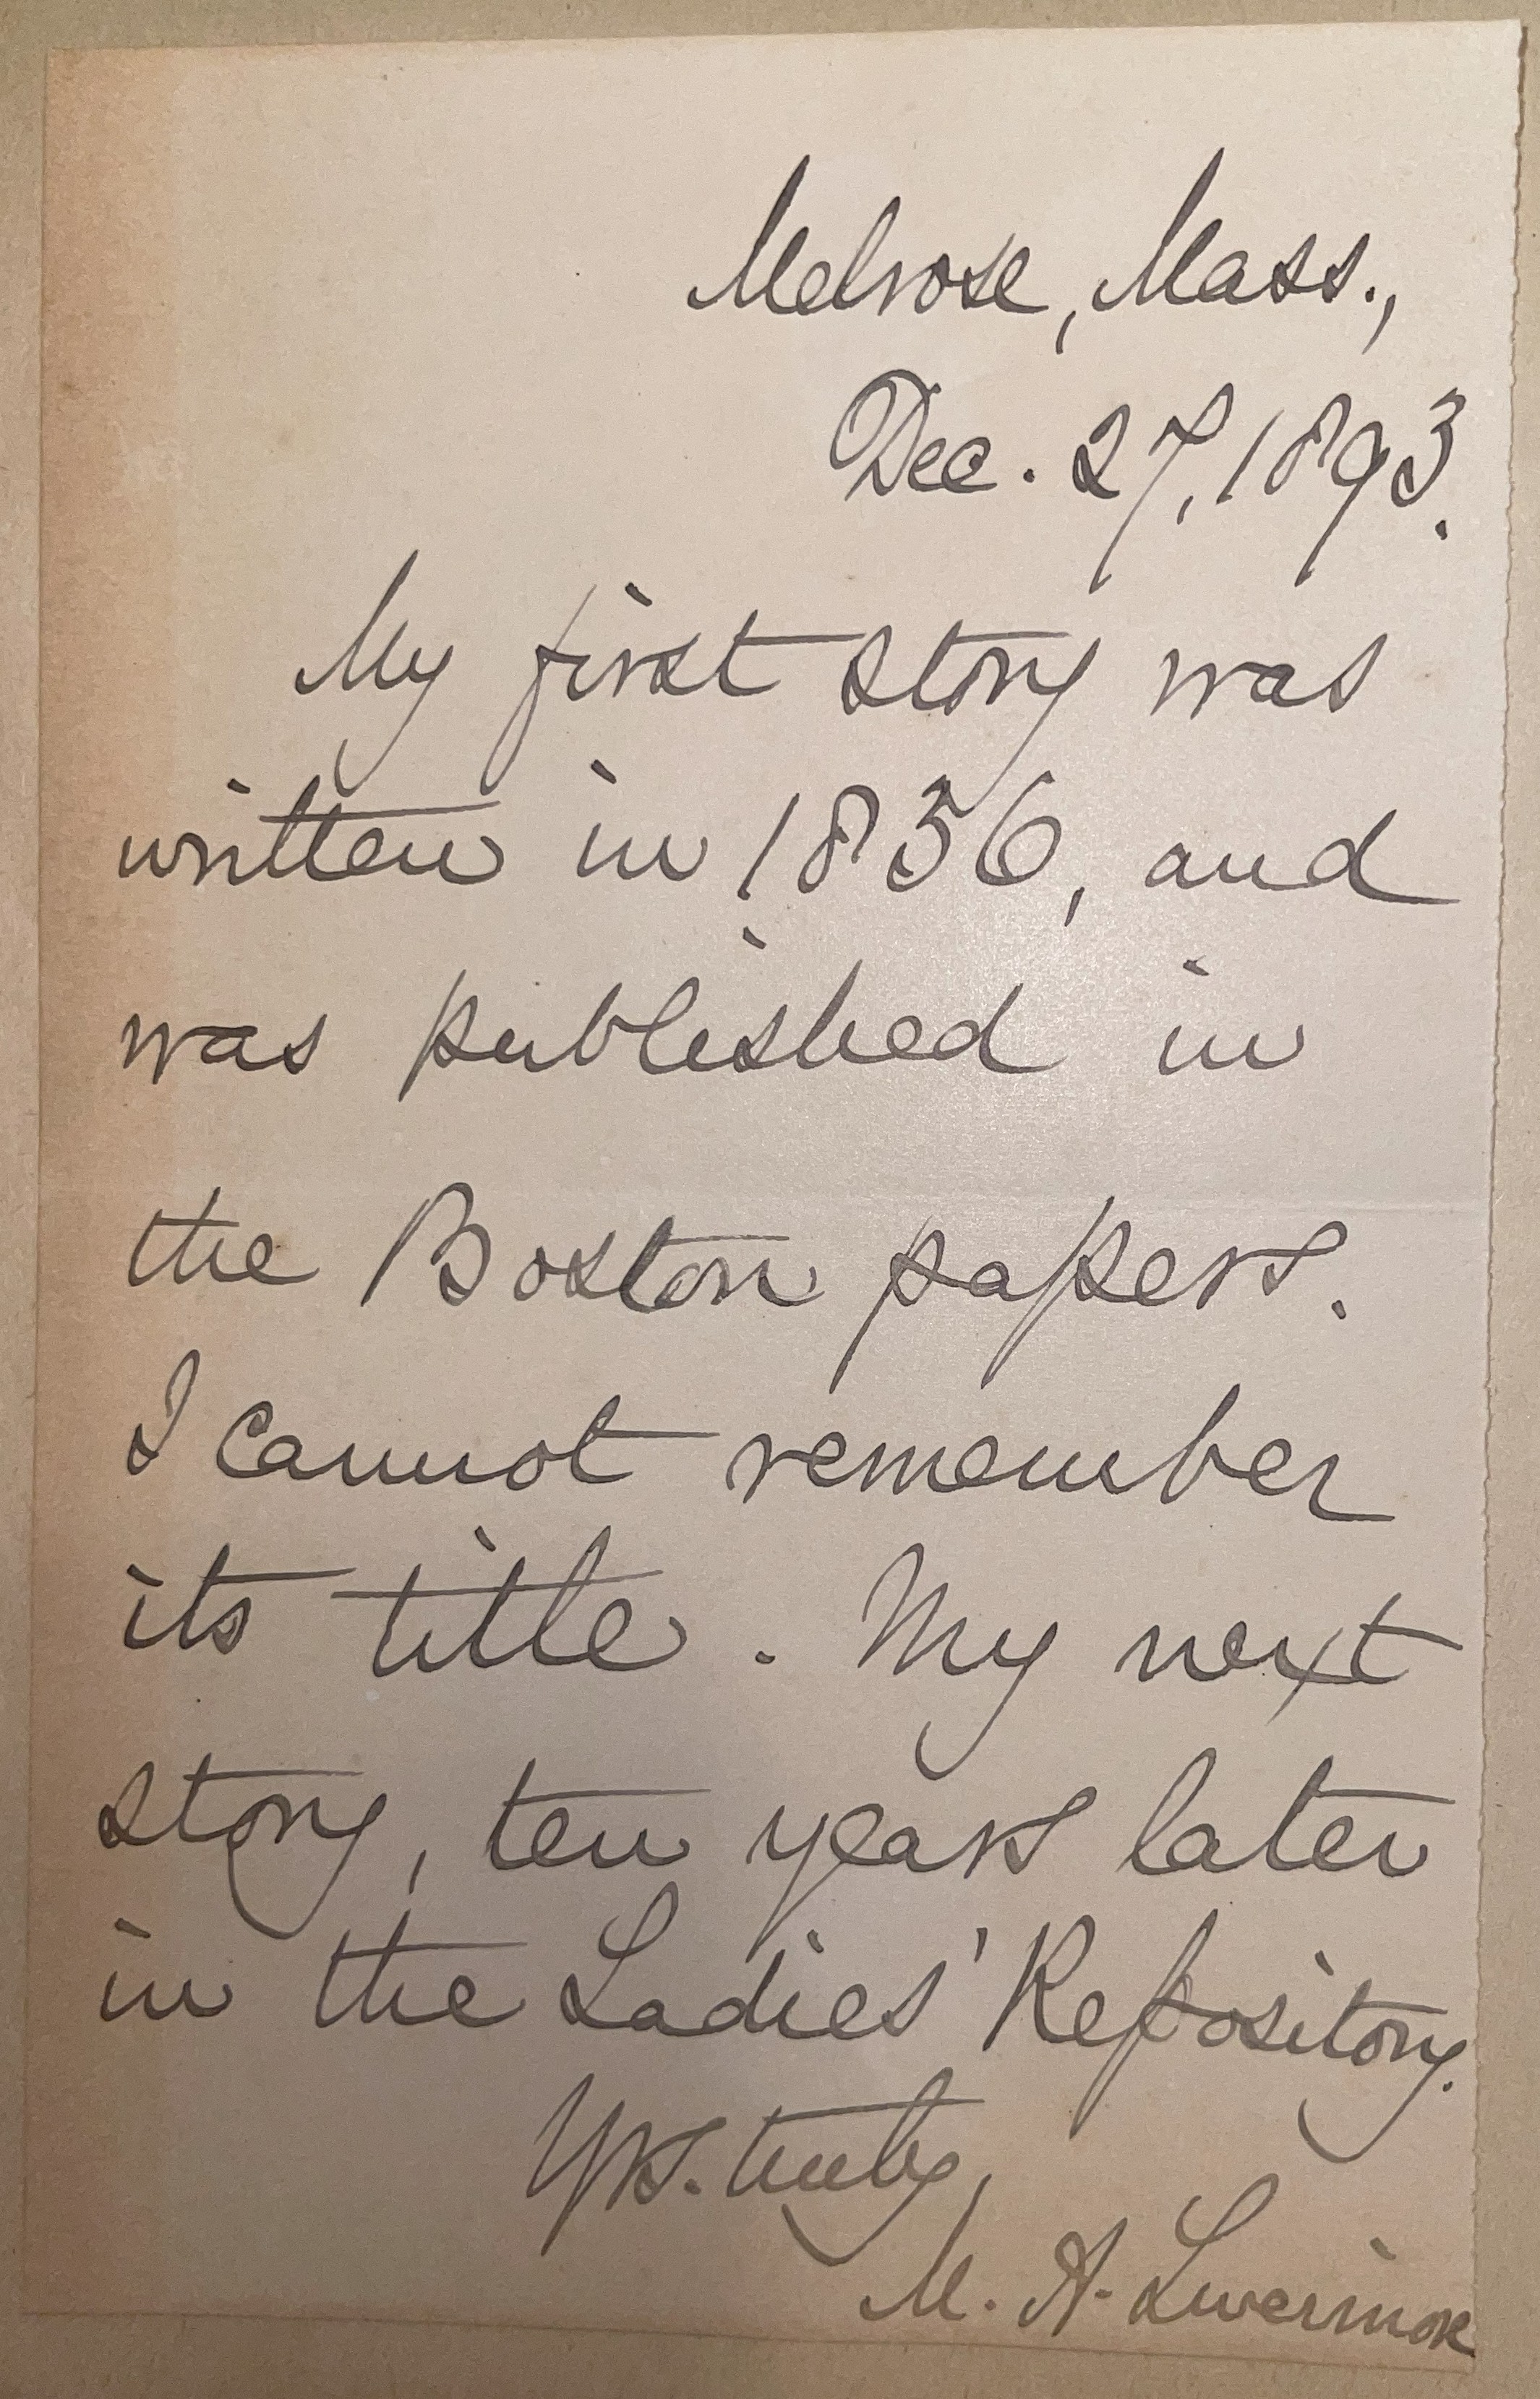 Melrose, Mass.,
Dec. 27, 1893.
My first story was
written in 1836, and
was published in
the Boston papers.
I cannot remember
its title. My next
story, ten years later
in the Ladies' Repository.
Yrs. truly,
M. A. Livermore